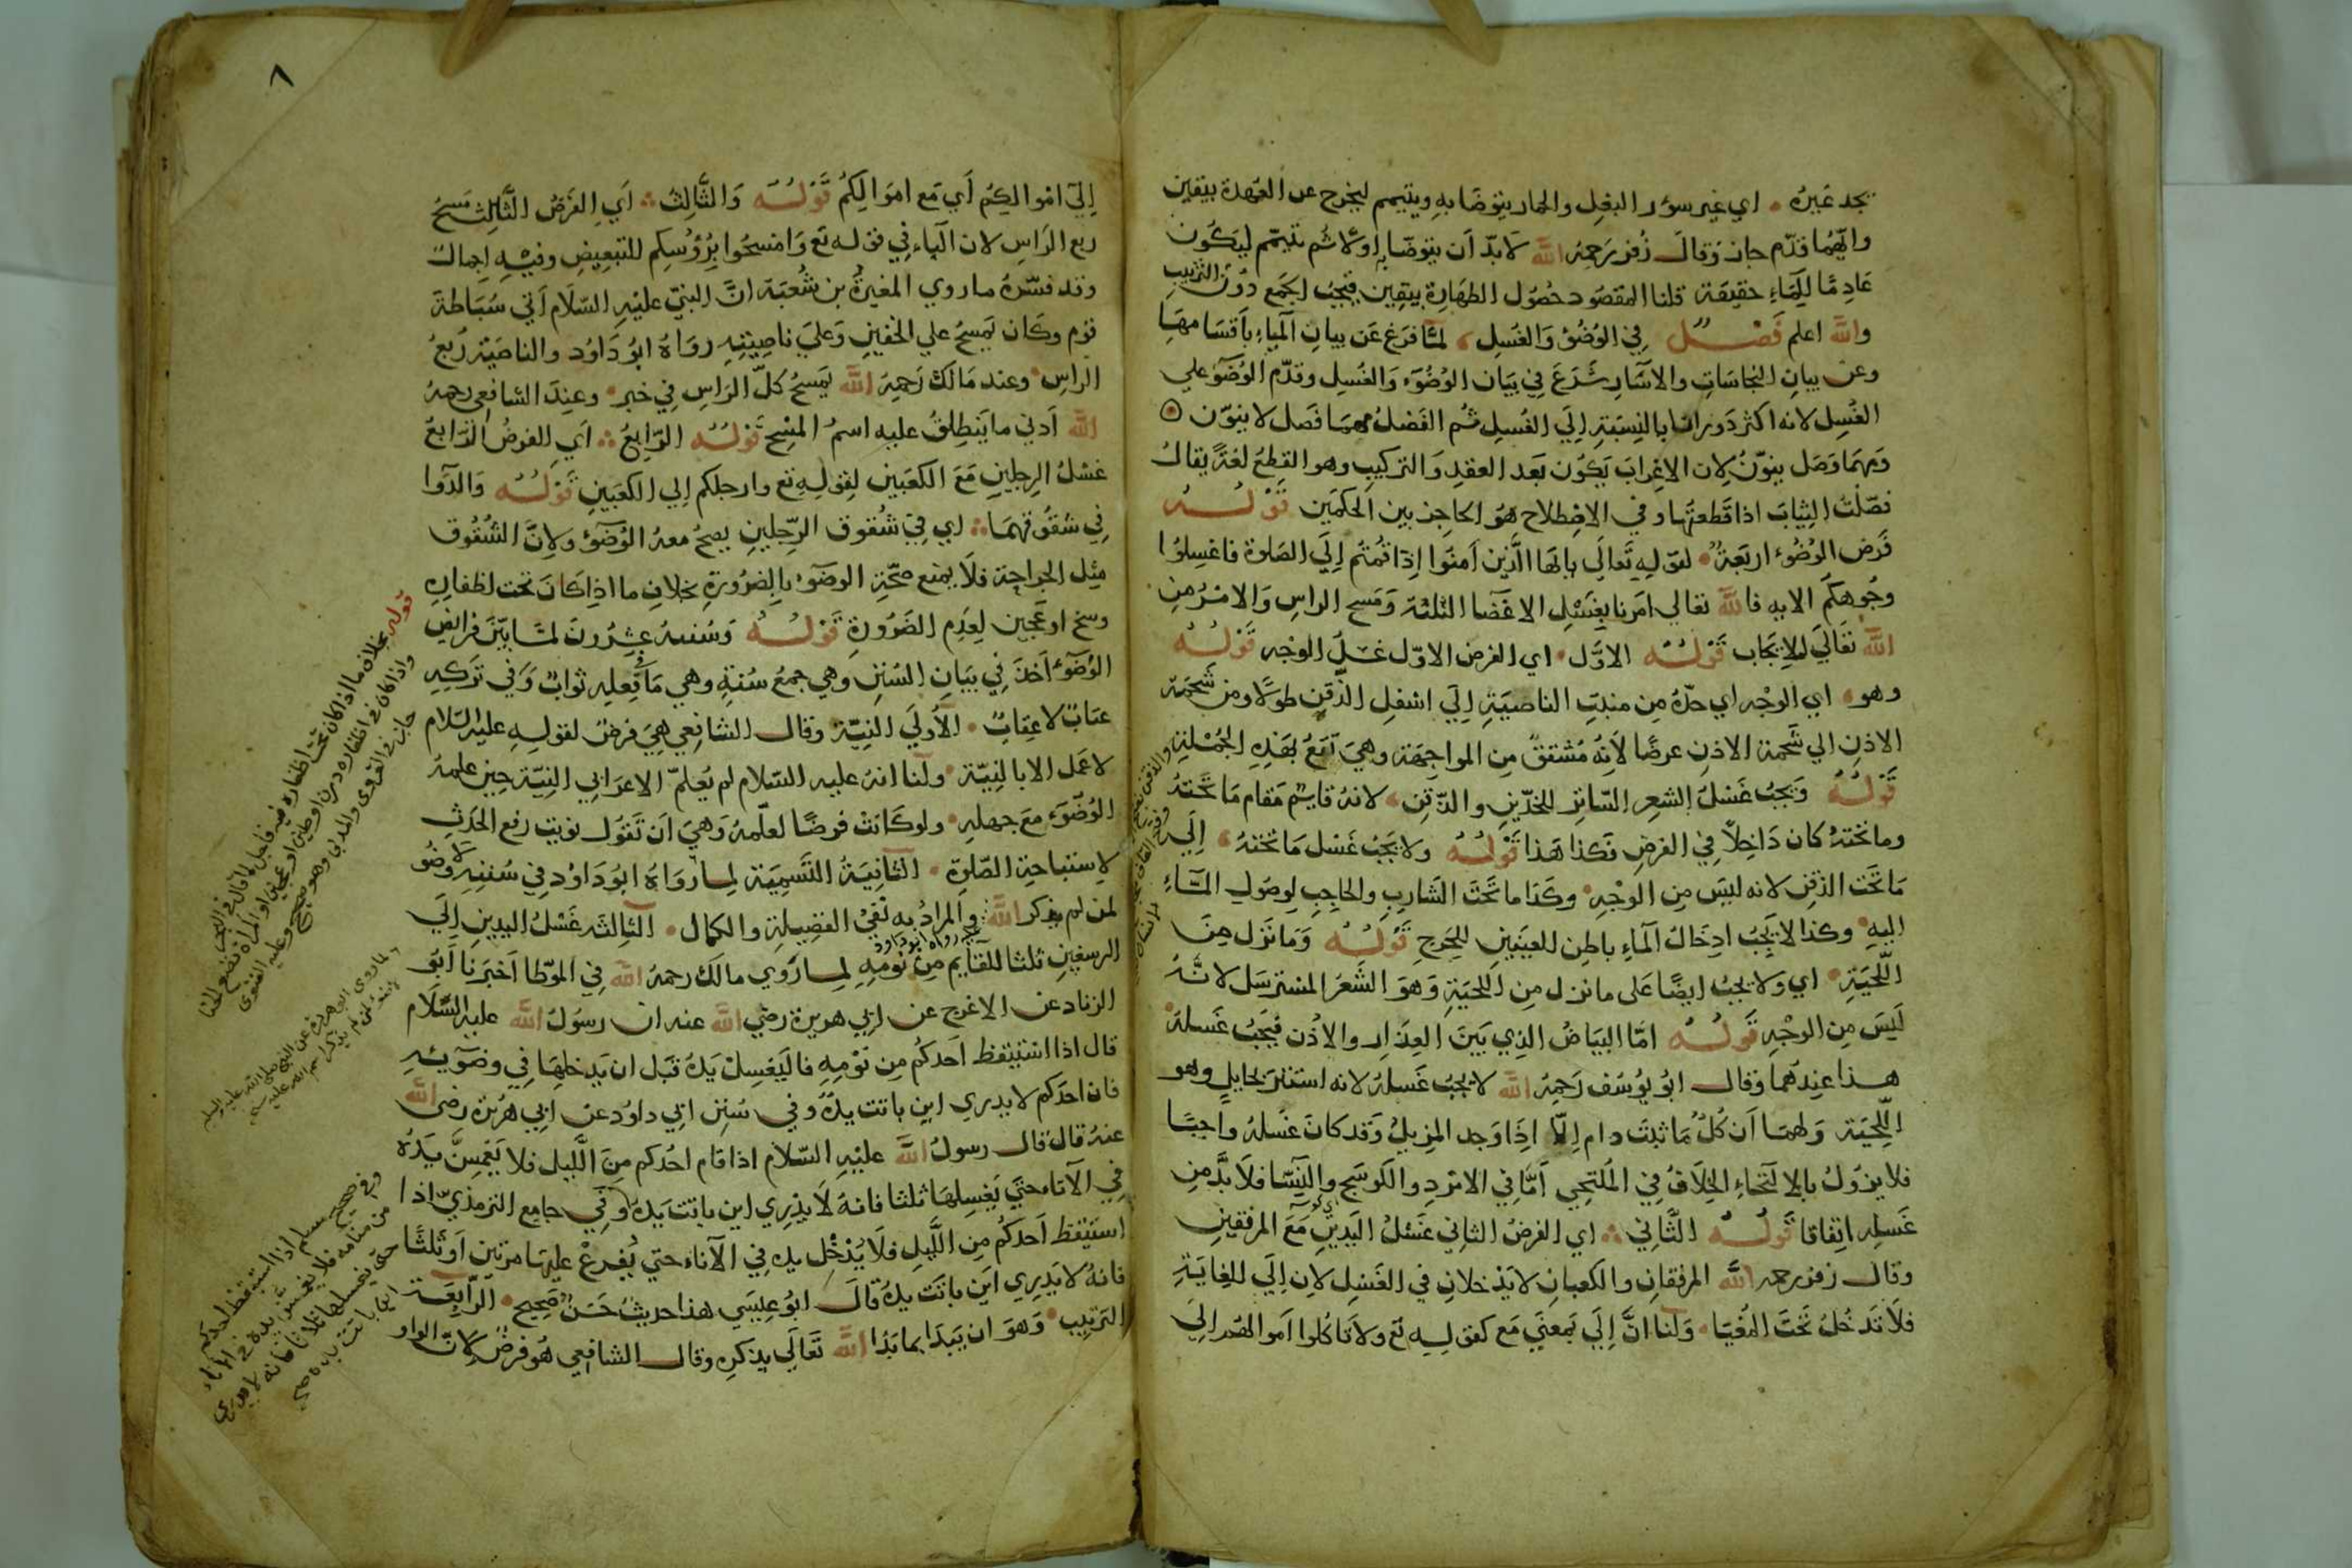 يجد غيره • اي غير سؤر البغل والحمار يتوضا به ويتيمم ليخرج عن العهدة بيقين
وايهما قدّم جاز وقال زفر رحمه الله لا بدّ ان يتوضا به اولا ثم يتيمّم ليكون
عادمًا للماء حقيقة قلنا المقصود حصول الطهارة بيقين فيجب الجمع دون الترتيب
والله اعلم فصل في الوضوء والغسل، لمّا فرغ عن بيان المياه باقسامها
وعن بيان النجاسات والاسار شرع في بيان الوضوء والغسل وقدّم الوضوء علي
الغسل لانه اكثر دورانا بالنسبة الي الغسل ثم الفصل مهما فصل لا ينوّن
ومهما وصل ينوّن لان الاعراب يكون بعد العقد والتركيب وهو القطع لغة يقال
فصّلت الثياب اذا قطعتها وفي الاصطلاح هو الحاجز بين الحكمين قوله
فرض الوضوء اربعة • لقوله تعالي يا ايها الذين امنوا اذا قمتم الي الصلوة فاغسلوا
وجوهكم الايه فالله تعالي امرنا بغسل الاعضا الثلثة ومسح الراس والامر من
الله تعالي للايجاب قوله الاوّل • اي الفرض الاوّل غسل الوجه قوله
وهو • اي الوجه اي حدّه من منبت الناصية الي اسفل الذقن طولا ومن شحمة
الاذن الي شحمة الاذن عرضًا لانه مشتق من المواجهة وهي تقع بهذه الجملة
قوله ويجب غسل الشعر السّاتر للخدّين والذقن، لانه قايم مقام ما تحته
وما تحته كان داخلًا في الفرض فكذا هذا قوله ولا يجب غسل ما تحته، الي
ما تحت الذقن لانه ليس من الوجه • وكذا ما تحت الشارب والحاجب لوصول الماء
اليه • وكذا لا يجب ادخال الماء باطن العينين للحرج قوله وما نزل من
اللّحية • اي ولا يجب ايضًا على ما نزل من اللحية وهو الشعر المسترسل لانه
ليس من الوجه قوله امّا البياض الذي بين العذار والاذن فيجب غسله
هذا عندهما وقال ابو يوسف رحمه الله لا يجب غسله لانه استتر بحايل وهو
اللّحية ولهما ان كل ما ثبت دام الّا اذا وجد المزيل وقد كان غسله واجبًا
فلا يزول بالالتحاء الخلاف في الملتحي امّا في الامرد والكوسج والنسا فلا بدّ من
غسله اتفاقا قوله الثاني ؞ اي الفرض الثاني غسل اليدين مع المرفقين
وقال زفر رحمه الله المرفقان والكعبان لا يدخلان في الغسل لان الي للغاية
فلا تدخل تحت المغيا • ولنا انّ الي بمعني مع كقوله تع ولا تاكلوا اموالهم الي
٨
الي اموالكم اي مع اموالكم قوله والثالث ؞ اي الفرض الثالث مسح
ربع الراس لان الباء في قوله تع وامسحوا برؤسكم للتبعيض وفيه اجمال
وقد فسّره ما روي المغيرة بن شعبة انّ النبيّ عليه السّلام اتي سباطة
قوم وكان يمسح علي الخفين وعلي ناصيته رواه ابو داود والناصية ربع
الراس • وعند مالك رحمه الله يمسح كلّ الراس في خبر • وعند الشافعي رحمه
الله ادني ما ينطلق عليه اسم المسح قوله الرّابع ؞ اي الفرض الرّابع
غسل الرجلين مع الكعبين لقوله تع وارجلكم الي الكعبين قوله والدّوا
في شقوقهما ؞ اي في شقوق الرّجلين يصح معه الوضوء ولانّ الشقوق
مثل الجراحة فلا يمنع صحّة الوضوء بالضرورة بخلاف ما اذا كان تحت اظفاره
وسخ او عجين لعدم الضرورة قوله وسننه عشرون لمّا بيّن فرائض
الوضوء اخذ في بيان السّنن وهي جمع سنة وهي ما في فعله ثواب وفي تركه
عتاب لا عقاب • الاولي النيّة وقال الشافعي هي فرض لقوله عليه السّلام
لا عمل الا بالنيّة • ولنا انه عليه السّلام لم يعلّم الاعرابي النيّة حين علمه
الوضوء مع جهله • ولو كانت فرضًا لعلّمه وهي ان تقول نويت رفع الحدث
لاستباحة الصّلوة • الثانية التسمية لما رواه ابو داود في سننه لا وضو
لمن لم يذكر الله والمراد به نفي الفضيلة والكمال • الثالثه غسل اليدين الي
الرسغين ثلثا للقايم من نومه لما روي مالك رحمه الله في الموّطا اخبرنا ابو
الزناد عن الاعرج عن ابي هريرة رضي الله عنه ان رسول الله عليه السّلام
قال اذا استيقظ احدكم من نومه فاليغسل يده قبل ان يدخلها في وضوئه
فان احدكم لا يدري اين باتت يده وفي سنن ابي داود عن ابي هريرة رضي الله
عنه قال قال رسول الله عليه السّلام اذا قام احدكم من اللّيل فلا يغمسنّ يده
في الاناء حتي يغسلها ثلثا فانه لا يدري اين باتت يده وفي جامع الترمذيّ اذا
استيقظ احدكم من اللّيل فلا يدخل يده في الاناء حتي يفرغ عليها مرتين او ثلثًا
فانه لا يدري اين باتت يده قال ابو عيسي هذا حديث حسن صحيح • الرّابعة
الترتيب • وهو ان يبدا بما بدا الله تعالي بذكره وقال الشافعي هو فرض لانّ الواو
قوله بخلاف ما اذا كان تحت اظفاره
واذا كان في اظفاره درن او طين او عجين او المرأة تضع الحنا
جاز في القروى والمدني وهو صحيح وعليه الفتوى
وفي صحيح مسلم اذا استيقظ احدكم
من منامه فلا يغمس يده في الاناء
حتى يغسلها ثلاثا فانه لا يدري
اين باتت يده